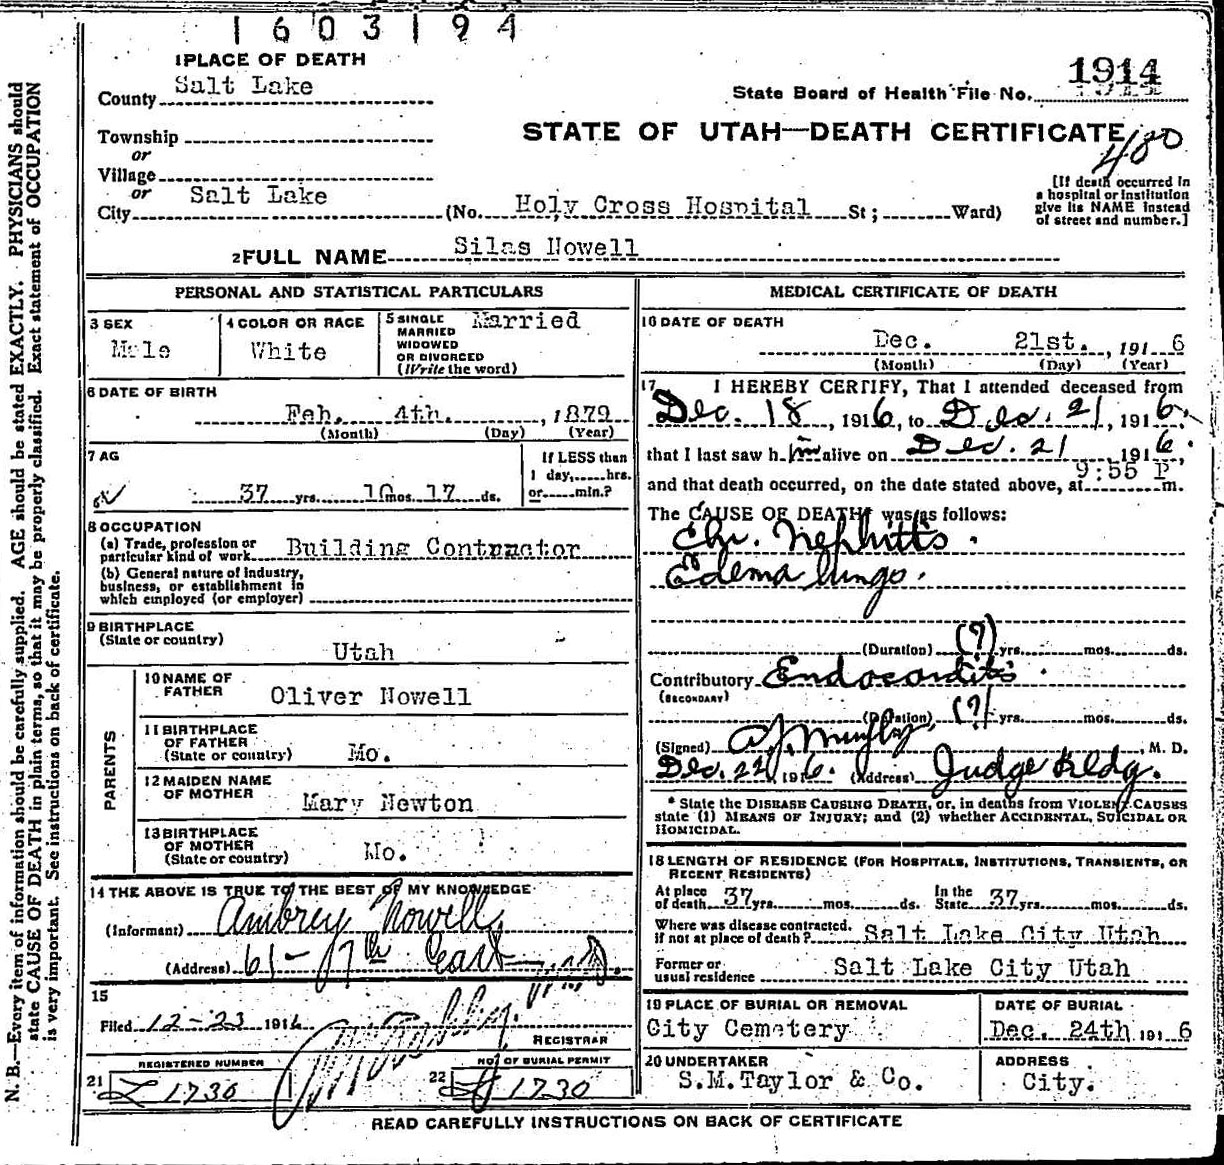 1603194
1 PLACE OF DEATH
County Salt Lake
State Board of Health File No. 1914
STATE OF UTAH—DEATH CERTIFICATE
480
Township
or
Village
or
City Salt Lake (No. Holy Cross Hospital St; Ward)
[If death occurred in
a hospital or institution
give its NAME instead
of street and number.]
2 FULL NAME Silas Nowell
PERSONAL AND STATISTICAL PARTICULARS
3 SEX
Male
4 COLOR OR RACE
White
5 SINGLE
MARRIED
WIDOWED
OR DIVORCED
(Write the word)
Married
6 DATE OF BIRTH
Feb. 4th. , 1879
(Month) (Day) (Year)
7 AG
37 yrs. 10 mos. 17 ds.
If LESS than
1 day, hrs.
or min.?
8 OCCUPATION
(a) Trade, profession or
particular kind of work Building Contractor
(b) General nature of industry,
business, or establishment in
which employed (or employer)
9 BIRTHPLACE
(State or country)
Utah
PARENTS
10 NAME OF
FATHER
Oliver Nowell
11 BIRTHPLACE
OF FATHER
(State or country) Mo.
12 MAIDEN NAME
OF MOTHER
Mary Newton
13 BIRTHPLACE
OF MOTHER
(State or country) Mo.
14 THE ABOVE IS TRUE TO THE BEST OF MY KNOWLEDGE
(Informant) Aubrey Nowell
(Address) 61 - 7th East
15
Filed 12-23 1916
REGISTRAR
REGISTERED NUMBER
21 1730
NO. OF BURIAL PERMIT
22 1730
MEDICAL CERTIFICATE OF DEATH
16 DATE OF DEATH
Dec. 21st. , 191 6
(Month) (Day) (Year)
17 I HEREBY CERTIFY, That I attended deceased from
Dec. 18 , 1916, to Dec. 21 , 1916,
that I last saw h im alive on Dec. 21 1916,
and that death occurred, on the date stated above, at 9:55 P m.
The CAUSE OF DEATH* was as follows:
Chr. Nephritis.
Edema lungs.
(Duration) (?) yrs. mos. ds.
Contributory Endocarditis.
(SECONDARY)
(Duration) (?) yrs. mos. ds.
(Signed) Murphy , M. D.
Dec. 22, 1916. (Address) Judge Bldg.
* State the DISEASE CAUSING DEATH, or, in deaths from VIOLENT CAUSES
state (1) MEANS OF INJURY; and (2) whether ACCIDENTAL, SUICIDAL OR
HOMICIDAL.
18 LENGTH OF RESIDENCE (FOR HOSPITALS, INSTITUTIONS, TRANSIENTS, OR
RECENT RESIDENTS)
At place
of death 37 yrs. mos. ds.
In the
State 37 yrs. mos. ds.
Where was disease contracted,
if not at place of death? Salt Lake City Utah
Former or
usual residence Salt Lake City Utah
19 PLACE OF BURIAL OR REMOVAL
City Cemetery
DATE OF BURIAL
Dec. 24th 191 6
20 UNDERTAKER
S.M.Taylor & Co.
ADDRESS
City.
READ CAREFULLY INSTRUCTIONS ON BACK OF CERTIFICATE
N. B.—Every item of information should be carefully supplied. AGE should be stated EXACTLY. PHYSICIANS should
state CAUSE OF DEATH in plain terms, so that it may be properly classified. Exact statement of OCCUPATION
is very important. See instructions on back of certificate.